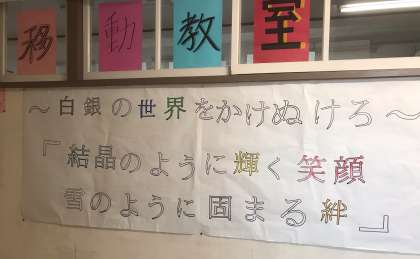 移動教室
～白銀の世界をかけぬけろ～
『結晶のように輝く笑顔
雪のように固まる絆』